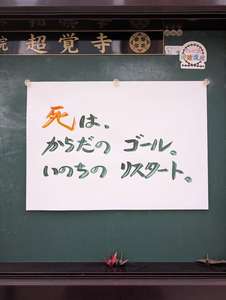 院 超覚寺
死は、
からだの ゴール。
いのちの リスタート。